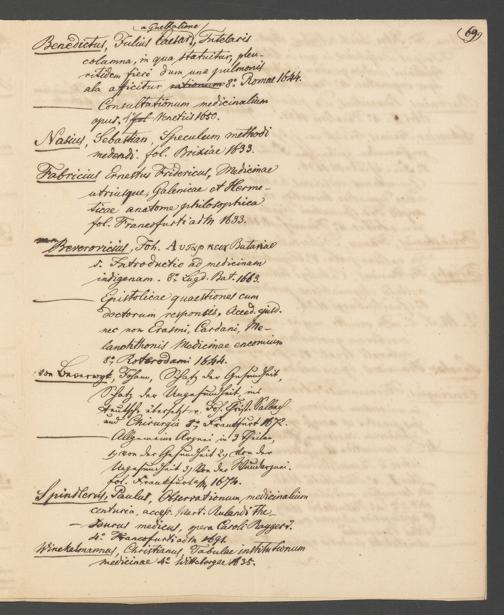 69.
a Guelfalione
Benedictus, Julius Caesar, Tutelaris
columna, in qua statuitur, pleu-
ritidem fieri dum una pulmonis
ala afficitur rationum 8º. Romae 1644.
——— Consultationum medicinalium
opus. fol. Venetiis 1650.
Nasius, Sebastian, Speculum methodi
medendi. fol. Brixiae 1633.
Fabricius Ernestus Fridericus, Medicinae
utriusque, Galenicae et Herme-
ticae anatome philosophica
fol. Francofurti ad M 1633.
Beverovicius, Joh. Αυταρκεια Bataviae
s. Introductio ad medicinam
indigenam. 8º. Lugd. Bat. 1663.
——— Epistolicae quaestiones cum
doctorum responsis. Acced. ejusd.
nec non Erasmi, Cardani, Me-
lanchthonis Medicinae encomium
8º. Roterodami 1644.
von Beverwyk, Johann, Schatz der Gesundheit,
Schatz der Ungesundheit, ins
teutsche übersetzt
und Chirurgie 8º. Frankfurt 1672.
——— Allgemeine Arznei in 3 Theilen,
1) von der Gesundheit 2) von der
Ungesundheit 3) Von der Wundarznei.
fol. Frankfurt a/M 1674.
Spindlerus, Paulus, Observationum medicinalium
centuria, acced. Mart. Rulandi The-
saurus medicus, cura Caroli Raygeri.
4º. Francofurti ad M 1691.
Winckelmannus, Christianus, Tabulae institutionum
medicinae 4º. Wittebergae 1635.